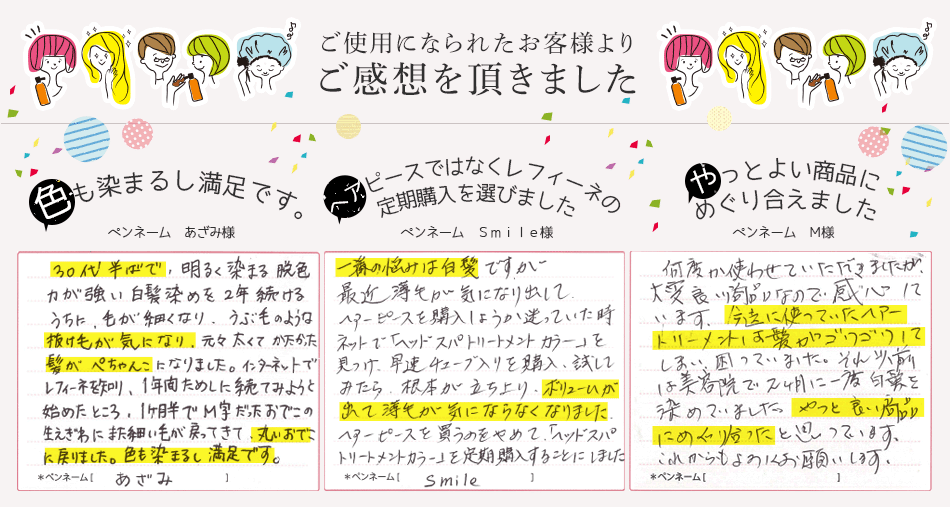 ご使用になられたお客様より
ご感想を頂きました
色も染まるし満足です。
ペンネーム あざみ様
30代半ばで、明るく染まる脱色
力が強い白髪染めを2年続ける
うちに、毛が細くなり、うぶ毛のような
抜け毛が気になり、元々太くてかたかた
髪がぺちゃんこになりました。インターネットで
レフィーネを知り、1年間ためしに続てみようと
始めたところ、1ヶ月半でM字だったおでこの
生えぎわにまた細い毛が戻ってきて、丸いおでこ
に戻りました。色も染まるし満足です。
*ペンネーム[ あざみ ]
ヘアピースではなくレフィーネの
定期購入を選びました
ペンネーム Smile様
一番の悩みは白髪ですが
最近薄毛が気になり出して、
ヘアーピースを購入しようか迷っていた時
ネットで「ヘッドスパトリートメントカラー」を
見つけ、早速チューブ入りを購入、試して
みたら、根本が立ち上り、ボリュームが
出て薄毛が気にならなくなりました。
ヘアーピースを買うのをやめて、「ヘッドスパ
トリートメントカラー」を定期購入することにしました
*ペンネーム[ Smile ]
やっとよい商品に
めぐり合えました
ペンネーム M様
何度か使わせていただきましたが、
大変良い商品なので感心して
います。今迄に使っていたヘアー
トリートメントは髪がゴワゴワして
しまい困っていました。それ以前
は美容院で2ヶ月に一度白髪を
染めていました。やっと良い商品
にめぐり合ったと思っています。
これからもよろしくお願いします。
*ペンネーム[ ]